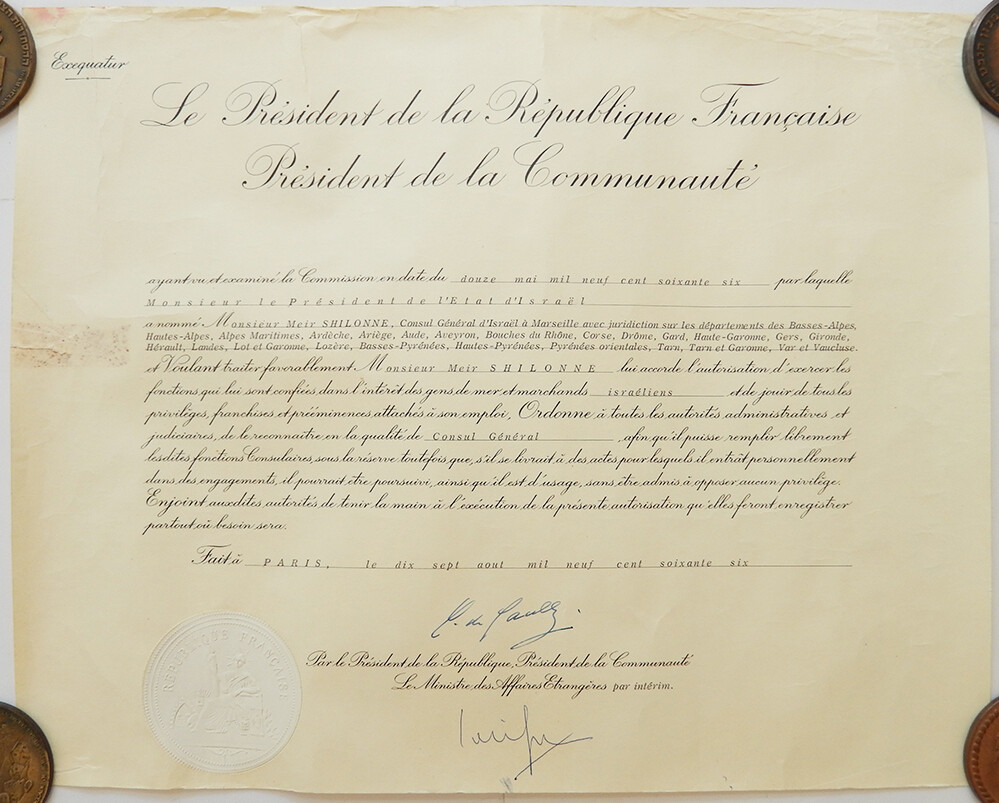 Exequatur
Le Président de la République Française
Président de la Communauté
ayant vu et examiné la Commission en date du douze mai mil neuf cent soixante six par laquelle
Monsieur le Président de l'Etat d'Israël
a nommé Monsieur Meir SHILONNE, Consul Général d'Israël à Marseille avec juridiction sur les départements des Basses-Alpes,
Hautes-Alpes, Alpes Maritimes, Ardèche, Ariège, Aude, Aveyron, Bouches du Rhône, Corse, Drôme, Gard, Haute-Garonne, Gers, Gironde,
Hérault, Landes, Lot et Garonne, Lozère, Basses-Pyrénées, Hautes-Pyrénées, Pyrénées orientales, Tarn, Tarn et Garonne, Var et Vaucluse.
et Voulant traiter favorablement Monsieur Meir SHILONNE lui accorde l'autorisation d'exercer les
fonctions qui lui sont confiées dans l'intérêt des gens de mer et marchands israéliens et de jouir de tous les
privilèges, franchises et prééminences attachés à son emploi, Ordonne à toutes les autorités administratives et
judiciaires, de le reconnaître en la qualité de Consul Général, afin qu'il puisse remplir librement
lesdites fonctions Consulaires, sous la réserve toutefois que, s'il se livrait à des actes pour lesquels il entrât personnellement
dans des engagements, il pourrait être poursuivi, ainsi qu'il est d'usage, sans être admis à opposer aucun privilège.
Enjoint auxdites autorités de tenir la main à l'exécution de la présente autorisation qu'elles feront enregistrer
partout où besoin sera.
Fait à PARIS, le dix sept aout mil neuf cent soixante six
C. de Gaulle
Par le Président de la République, Président de la Communauté
Le Ministre des Affaires Etrangères par intérim.
REPUBLIQUE FRANCAISE